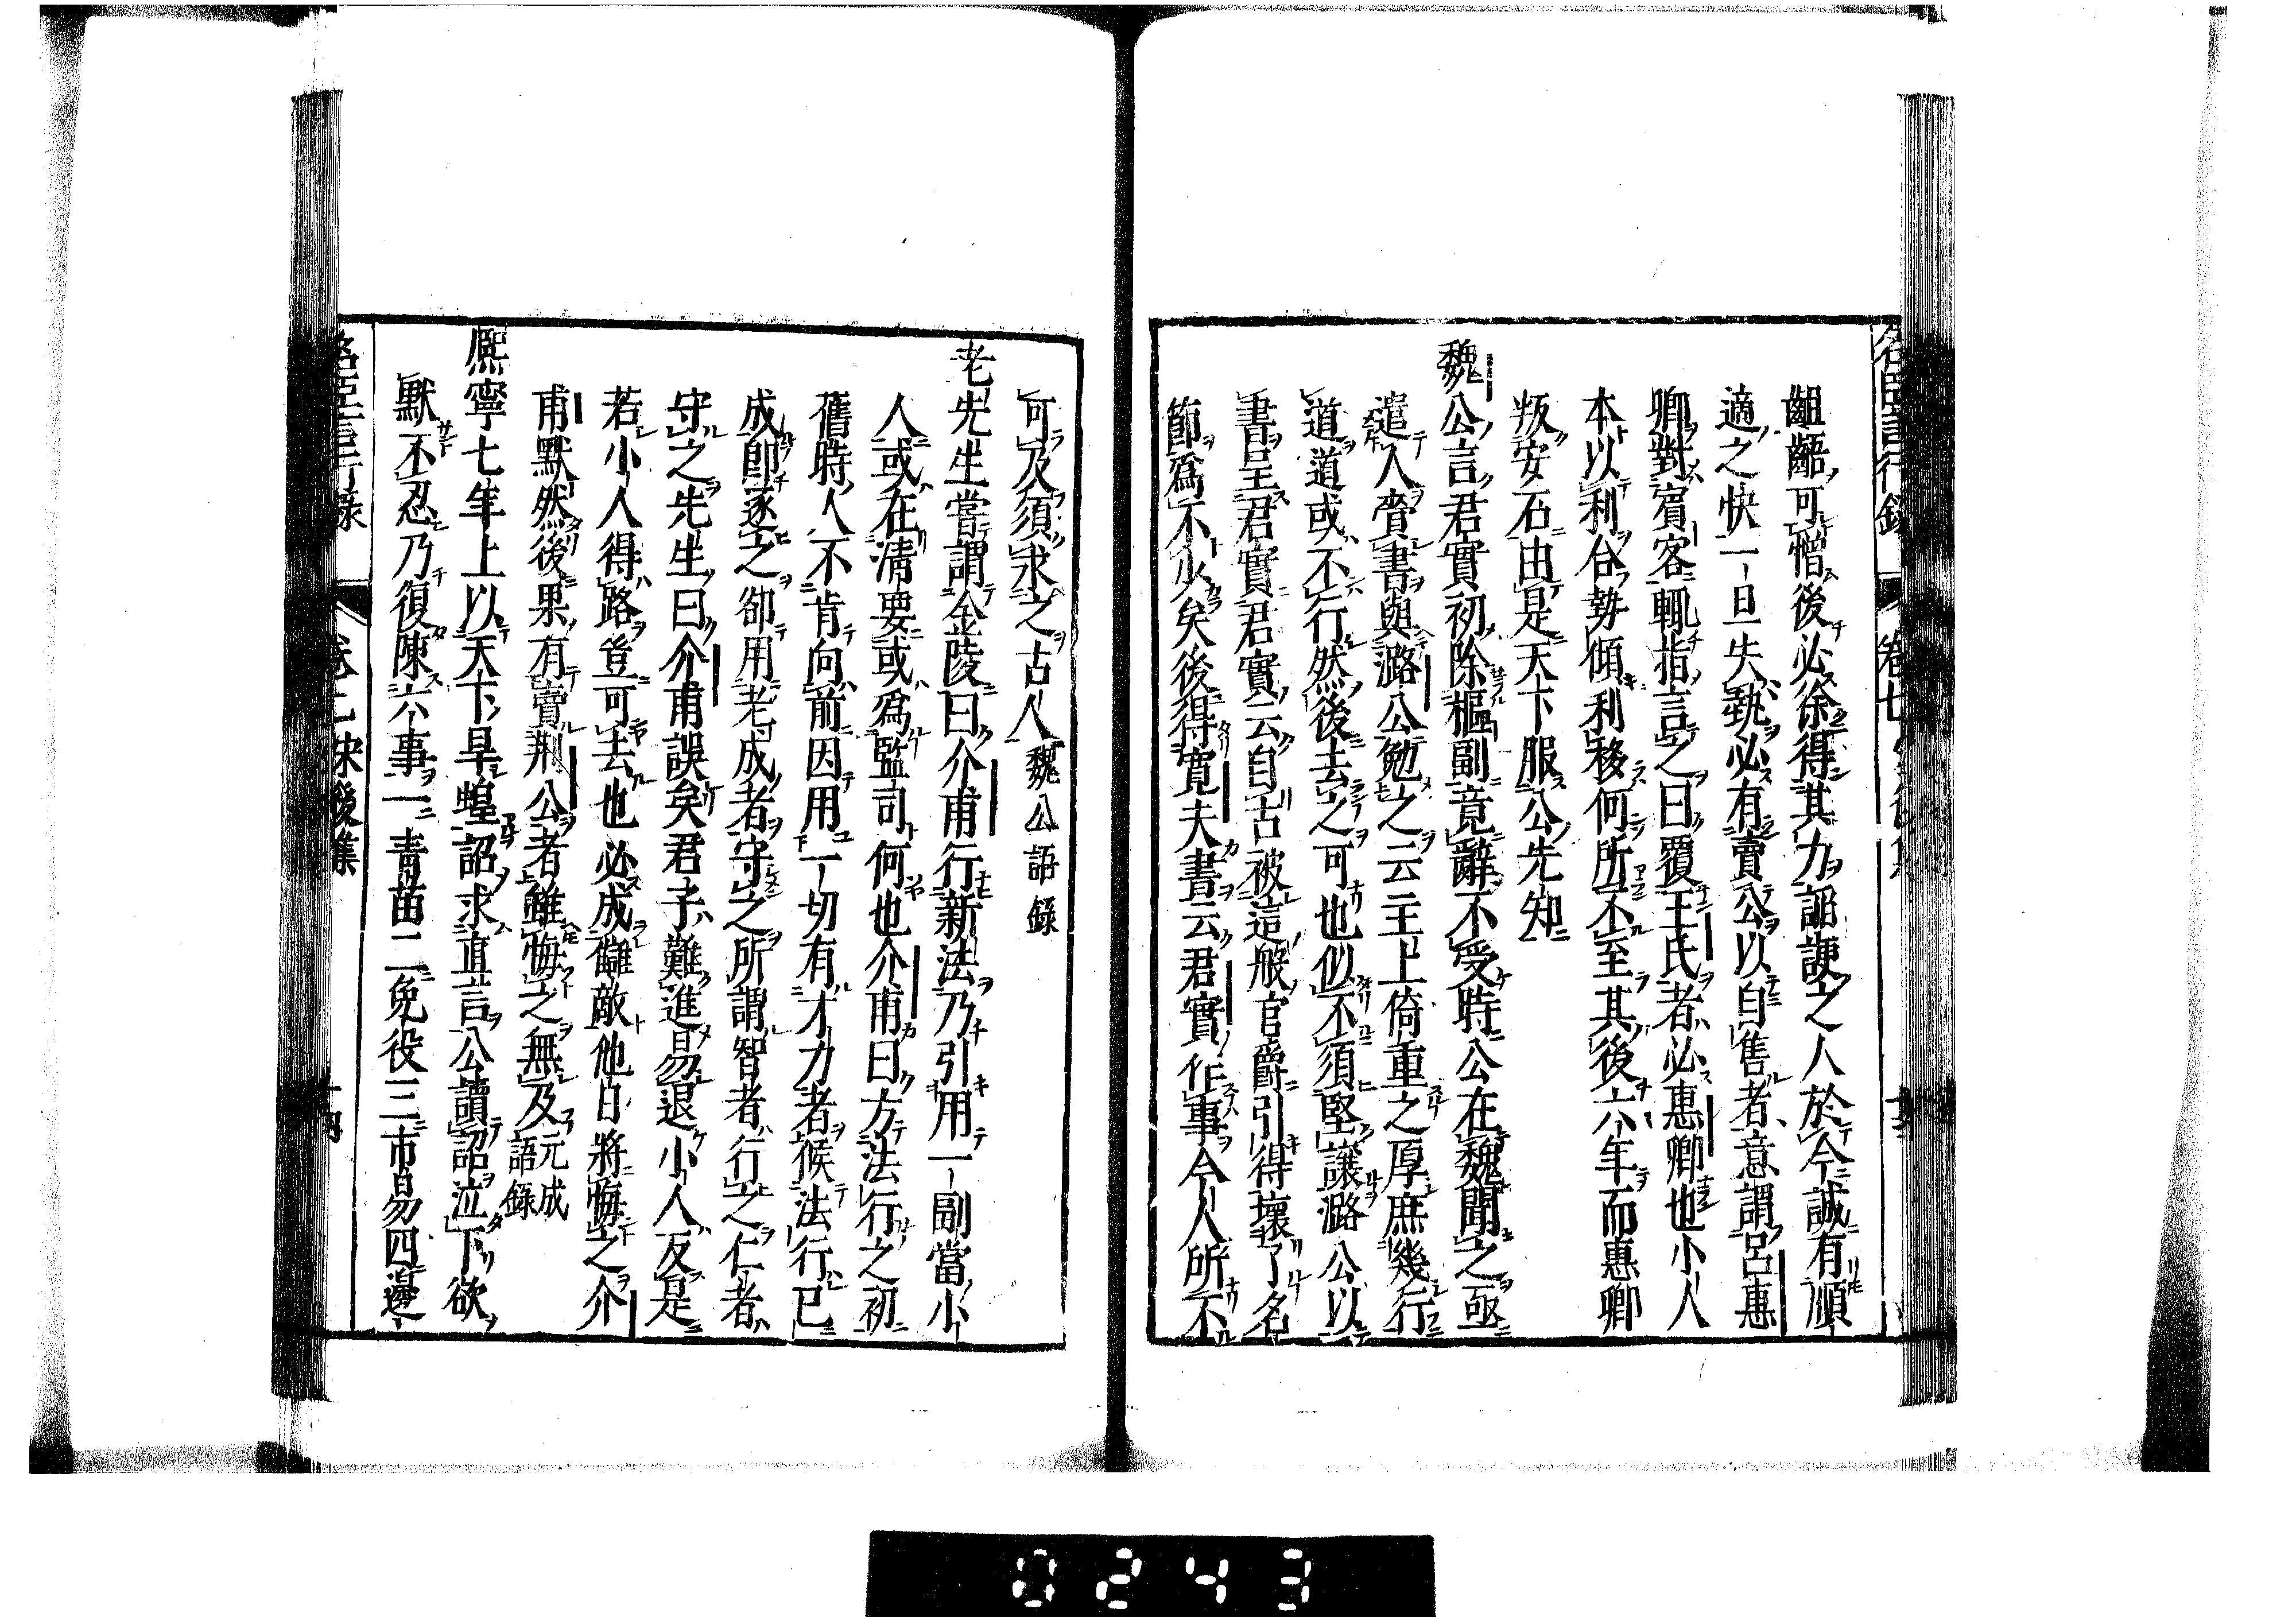 名臣言行錄 卷七
齟齬可憎後必徐得其力諂諛之人於今誠有順
適之快一旦失勢必有賣公以自售者意謂呂惠
卿對賓客輒指言之曰覆王氏者必惠卿也小人
本以利合勢傾利移何所不至其後六年而惠卿
叛安石由是天下服公先知
魏公言君實初除樞副竟辭不受時公在魏聞之亟
遣人齎書與潞公勉之云主上倚重之厚庶幾行
道道或不行然後去之可也似不須堅讓潞公以
書呈君實君實云自古被這般官爵引得壞了名
節為不少矣後得寬夫書云君實作事今人所不
可及須求之古人 魏公語錄
老先生嘗謂金陵曰介甫行新法乃引用一副當小
人或在清要或為監司何也介甫曰方法行之初
舊時人不肯向前因用一切有才力者候法行已
成即逐之卻用老成者守之所謂智者行之仁者
守之先生曰介甫誤矣君子難進易退小人反是
若小人得路豈可去也必成讎敵他日將悔之介
甫默然後果有賣荊公者雖悔之無及 元成語錄
熙寧七年上以天下旱蝗詔求直言公讀詔泣下欲
默不忍乃復陳六事一青苗二免役三市易四邊
名臣言行錄 卷七 宋後集 十四
0243